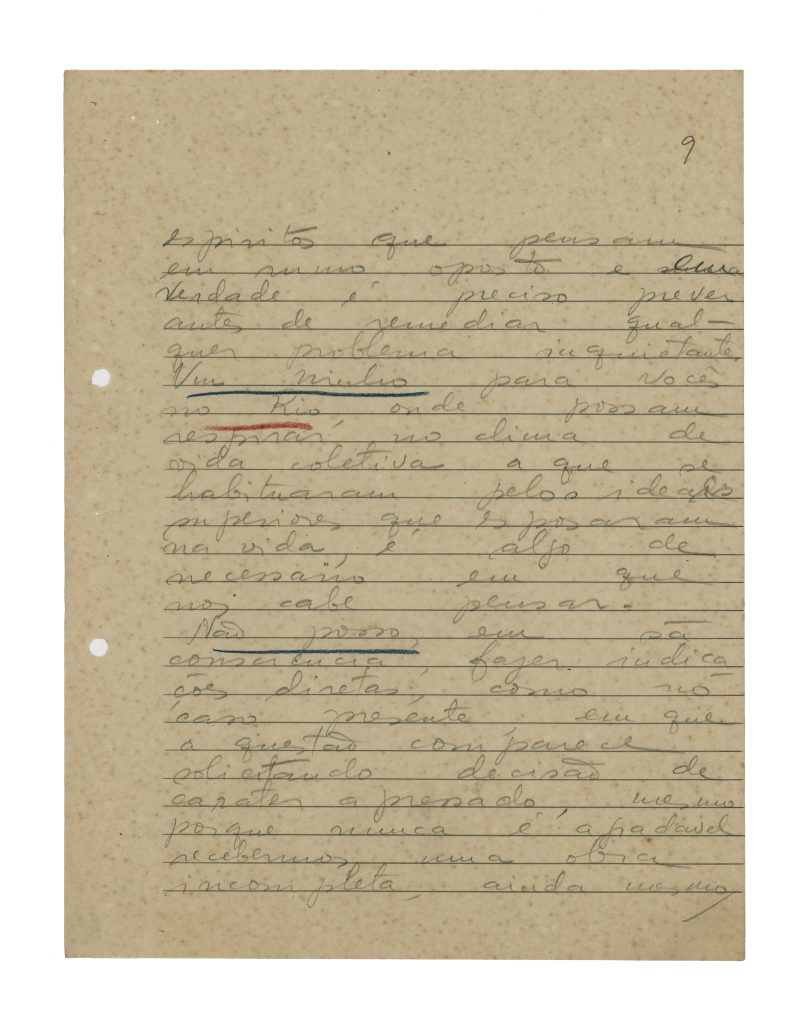 9
espiritos que pensam
em rumo oposto e
verdade é preciso prever
antes de remediar qual-
quer problema inquietante.
Um ninho para vocês
no Rio, onde possam
respirar no clima de
vida coletiva a que se
habituaram pelos ideais
superiores que esposaram
na vida, é algo de
necessário em que
nos cabe pensar.
Não posso, em sã
consciencia, fazer indica
ções diretas, como no
caso presente, em que
a questão comparece
solicitando decisão de
carater apressado, mesmo
porque nunca é agradavel
recebermos uma obra
incompleta, ainda mesmo